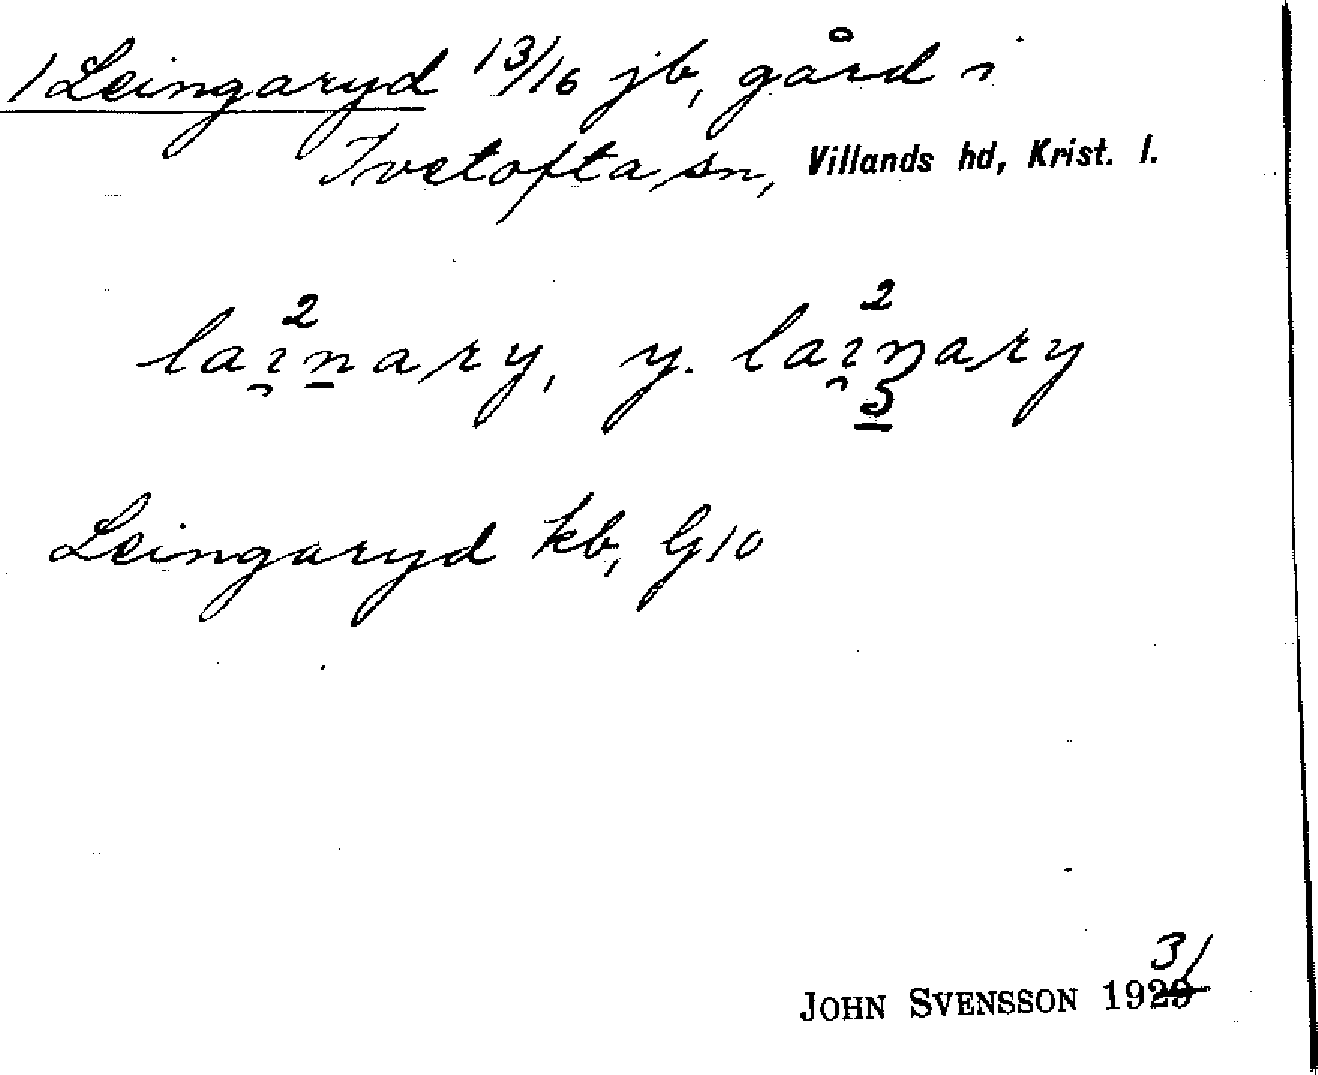 1 Leingaryd 13/16 jb, gård i
Ivetofta sn, Villands hd, Krist. l.
la2inary, y. la2inary
Leingaryd kb, G10
31
JOHN SVENSSON 1929